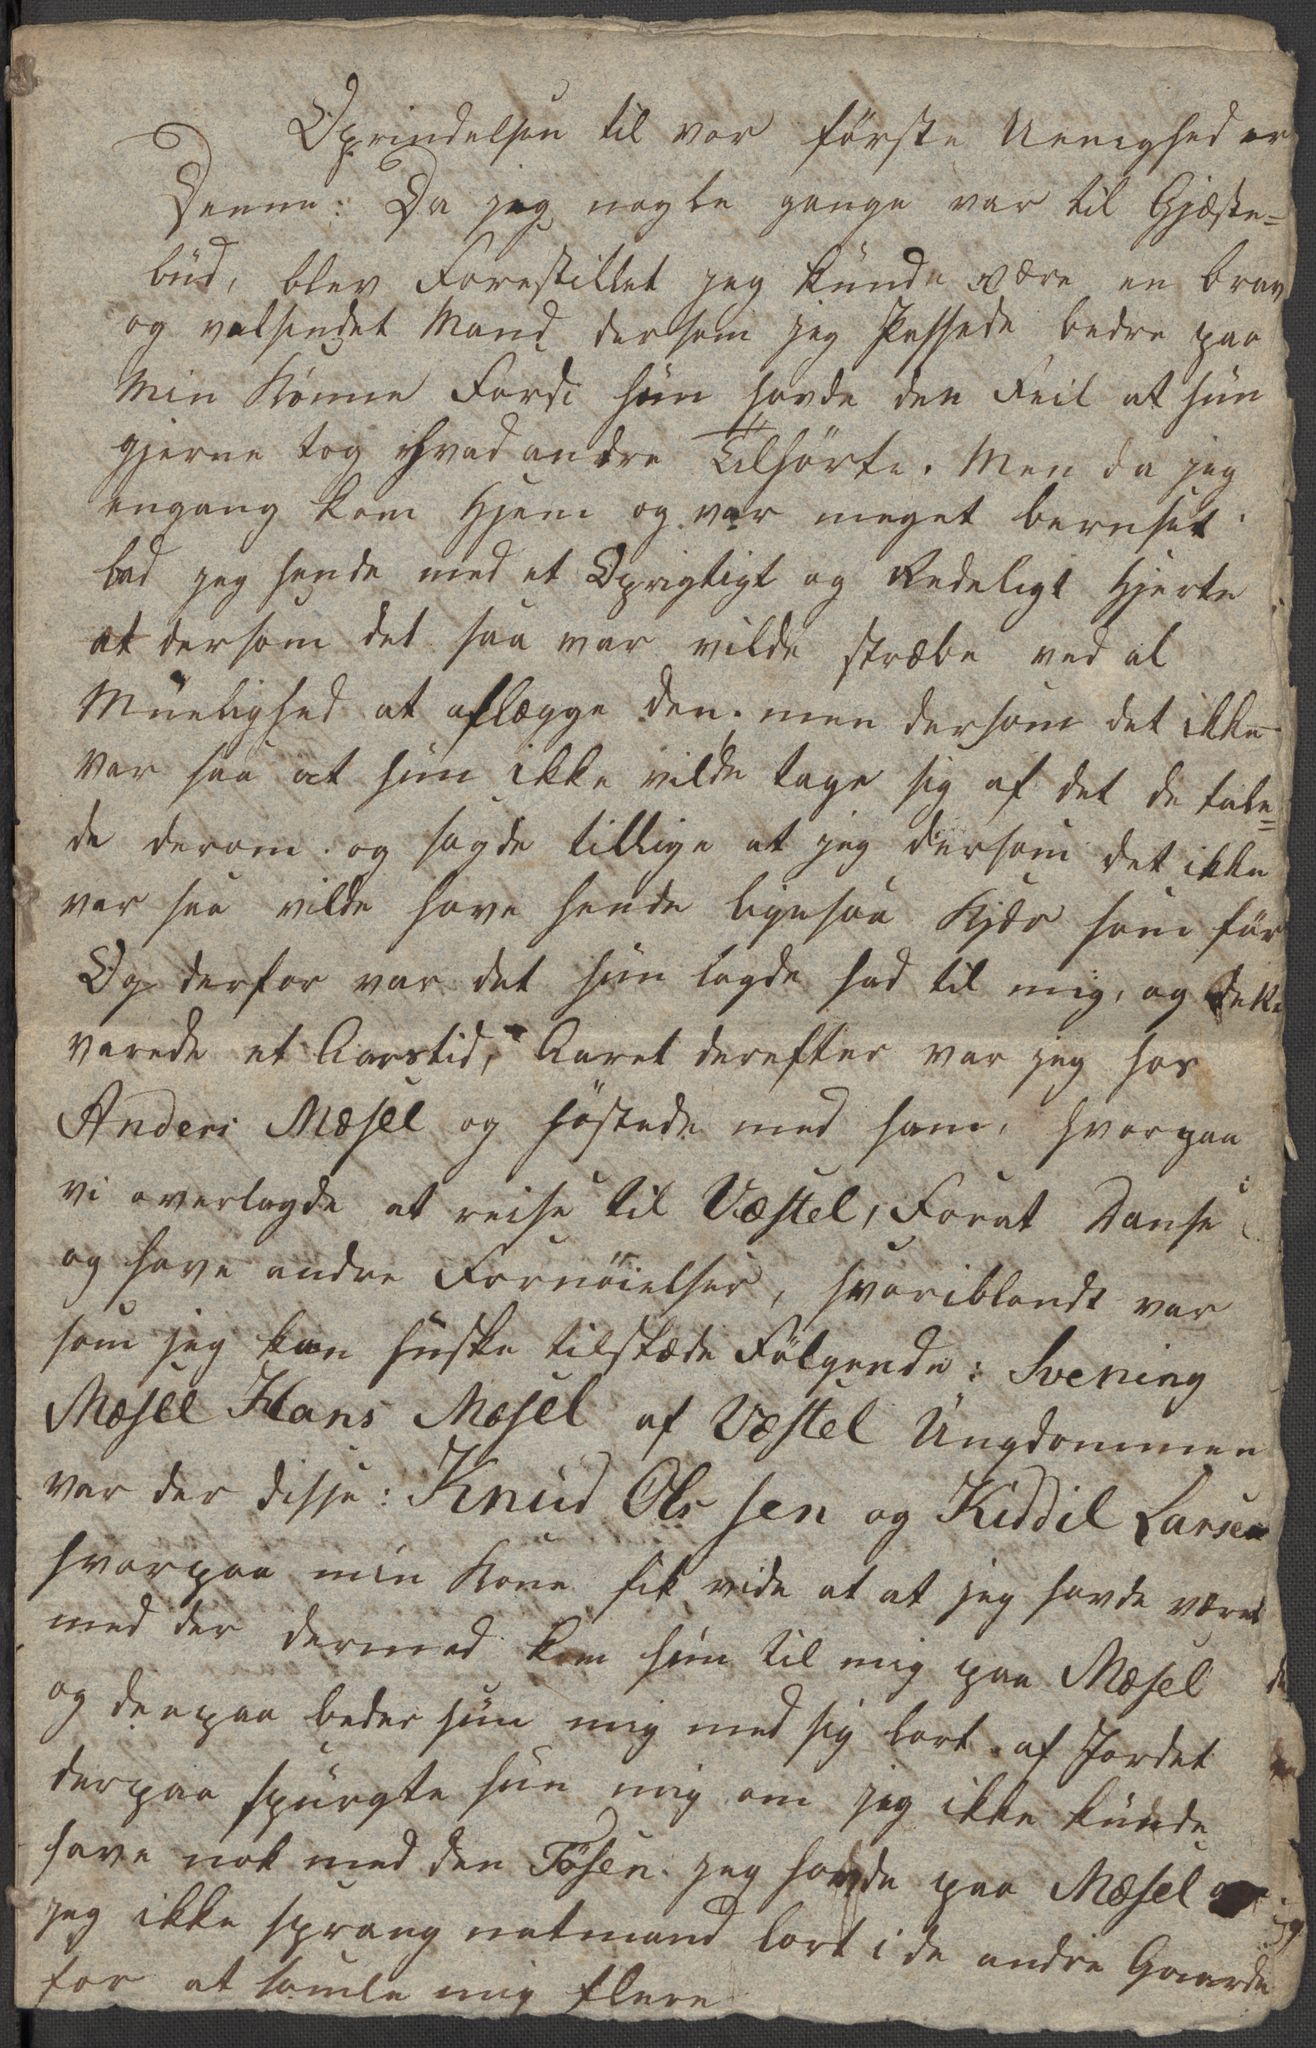 Oprindelsen til vor første Uenighed er
Denne: Da jeg nogle gange var til Gjæste=
bud, blev Forestillet jeg kunde være en brav
og velsindet Mand dersom jeg Passede bedre paa
Min Konne Fordi hun havde den Feil at hun
gjerne tog hvad andre Tilhørte. Men da jeg
engang kom Hjem og var meget beruset
bad jeg hende med et Oprigtigt og Redeligt Hjerte
at dersom det saa var vilde stræbe ved al
Muelighed at aflægge den, men dersom det ikke
var saa at hun ikke vilde tage sig af det de tale=
de derom. og sagde tillige at jeg dersom det ikke
var saa vilde have hende ligesaa Kjær som før
Og derfor var det hun lagde had til mig, og dette
varede et Aarstid, Aaret derefter var jeg hos
Anders Mæsel og høstede med ham, hvorpaa
vi overlagde at reise til Væstel, Forat Danse
og have andre Fornøielser, hvoriblandt var
som jeg kan huske tilstæde Følgende: Svening
Mæsel Hans Mæsel af Væstel Ungdommen
var der disse: Knud Olssen og Kiddil Larsen
hvorpaa min Kone fik vide at at jeg havde været
med der dermed kom hun til mig paa Mæsel
og derpaa beder hun mig med sig bort af Jordet
derpaa spurgte hun mig om jeg ikke kunde
have nok med den Tøsen jeg havde paa Mæsel
jeg ikke sprang natmand bort i de andre Gaarde
for at samle mig flere